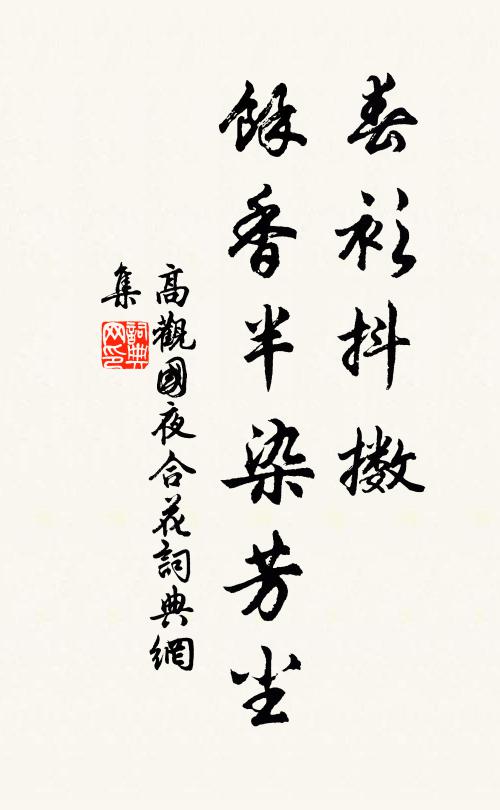 春衫抖擻
餘香半染芳尘
高觀國夜合花詞典網
集
詞典
网印